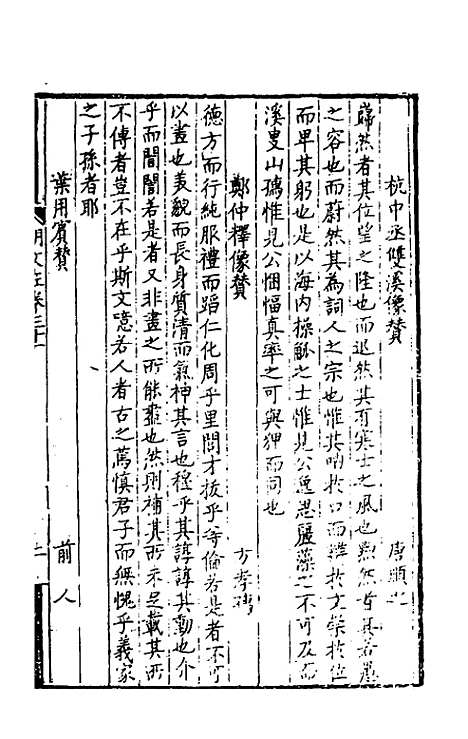 杭中丞雙溪像贊 唐順之
巋然者其位望之隆也而退然其有寒士之風也黝然昔其若愚
之容也而蔚然其為詞人之宗也惟其吶於口而雄於文榮於位
而卑其躬也是以海內操觚之士惟見公逸思麗藻之不可及而
溪叟山孺惟見公悃愊真率之可與狎而同也
鄭仲釋像贊 方孝孺
德方而行純服禮而蹈仁化周乎里閭才拔乎等倫若是者不可
以畫也美貌而長身質清而氣神其言也穆乎其諄諄其動也介
乎而誾誾若是者又非畫之所能盡也然則補其所未足載其所
不傳者豈不在乎斯文噫若人者古之篤慎君子而無愧乎義家
之子孫者耶
葉用賓贊 前人
明文在卷三十一